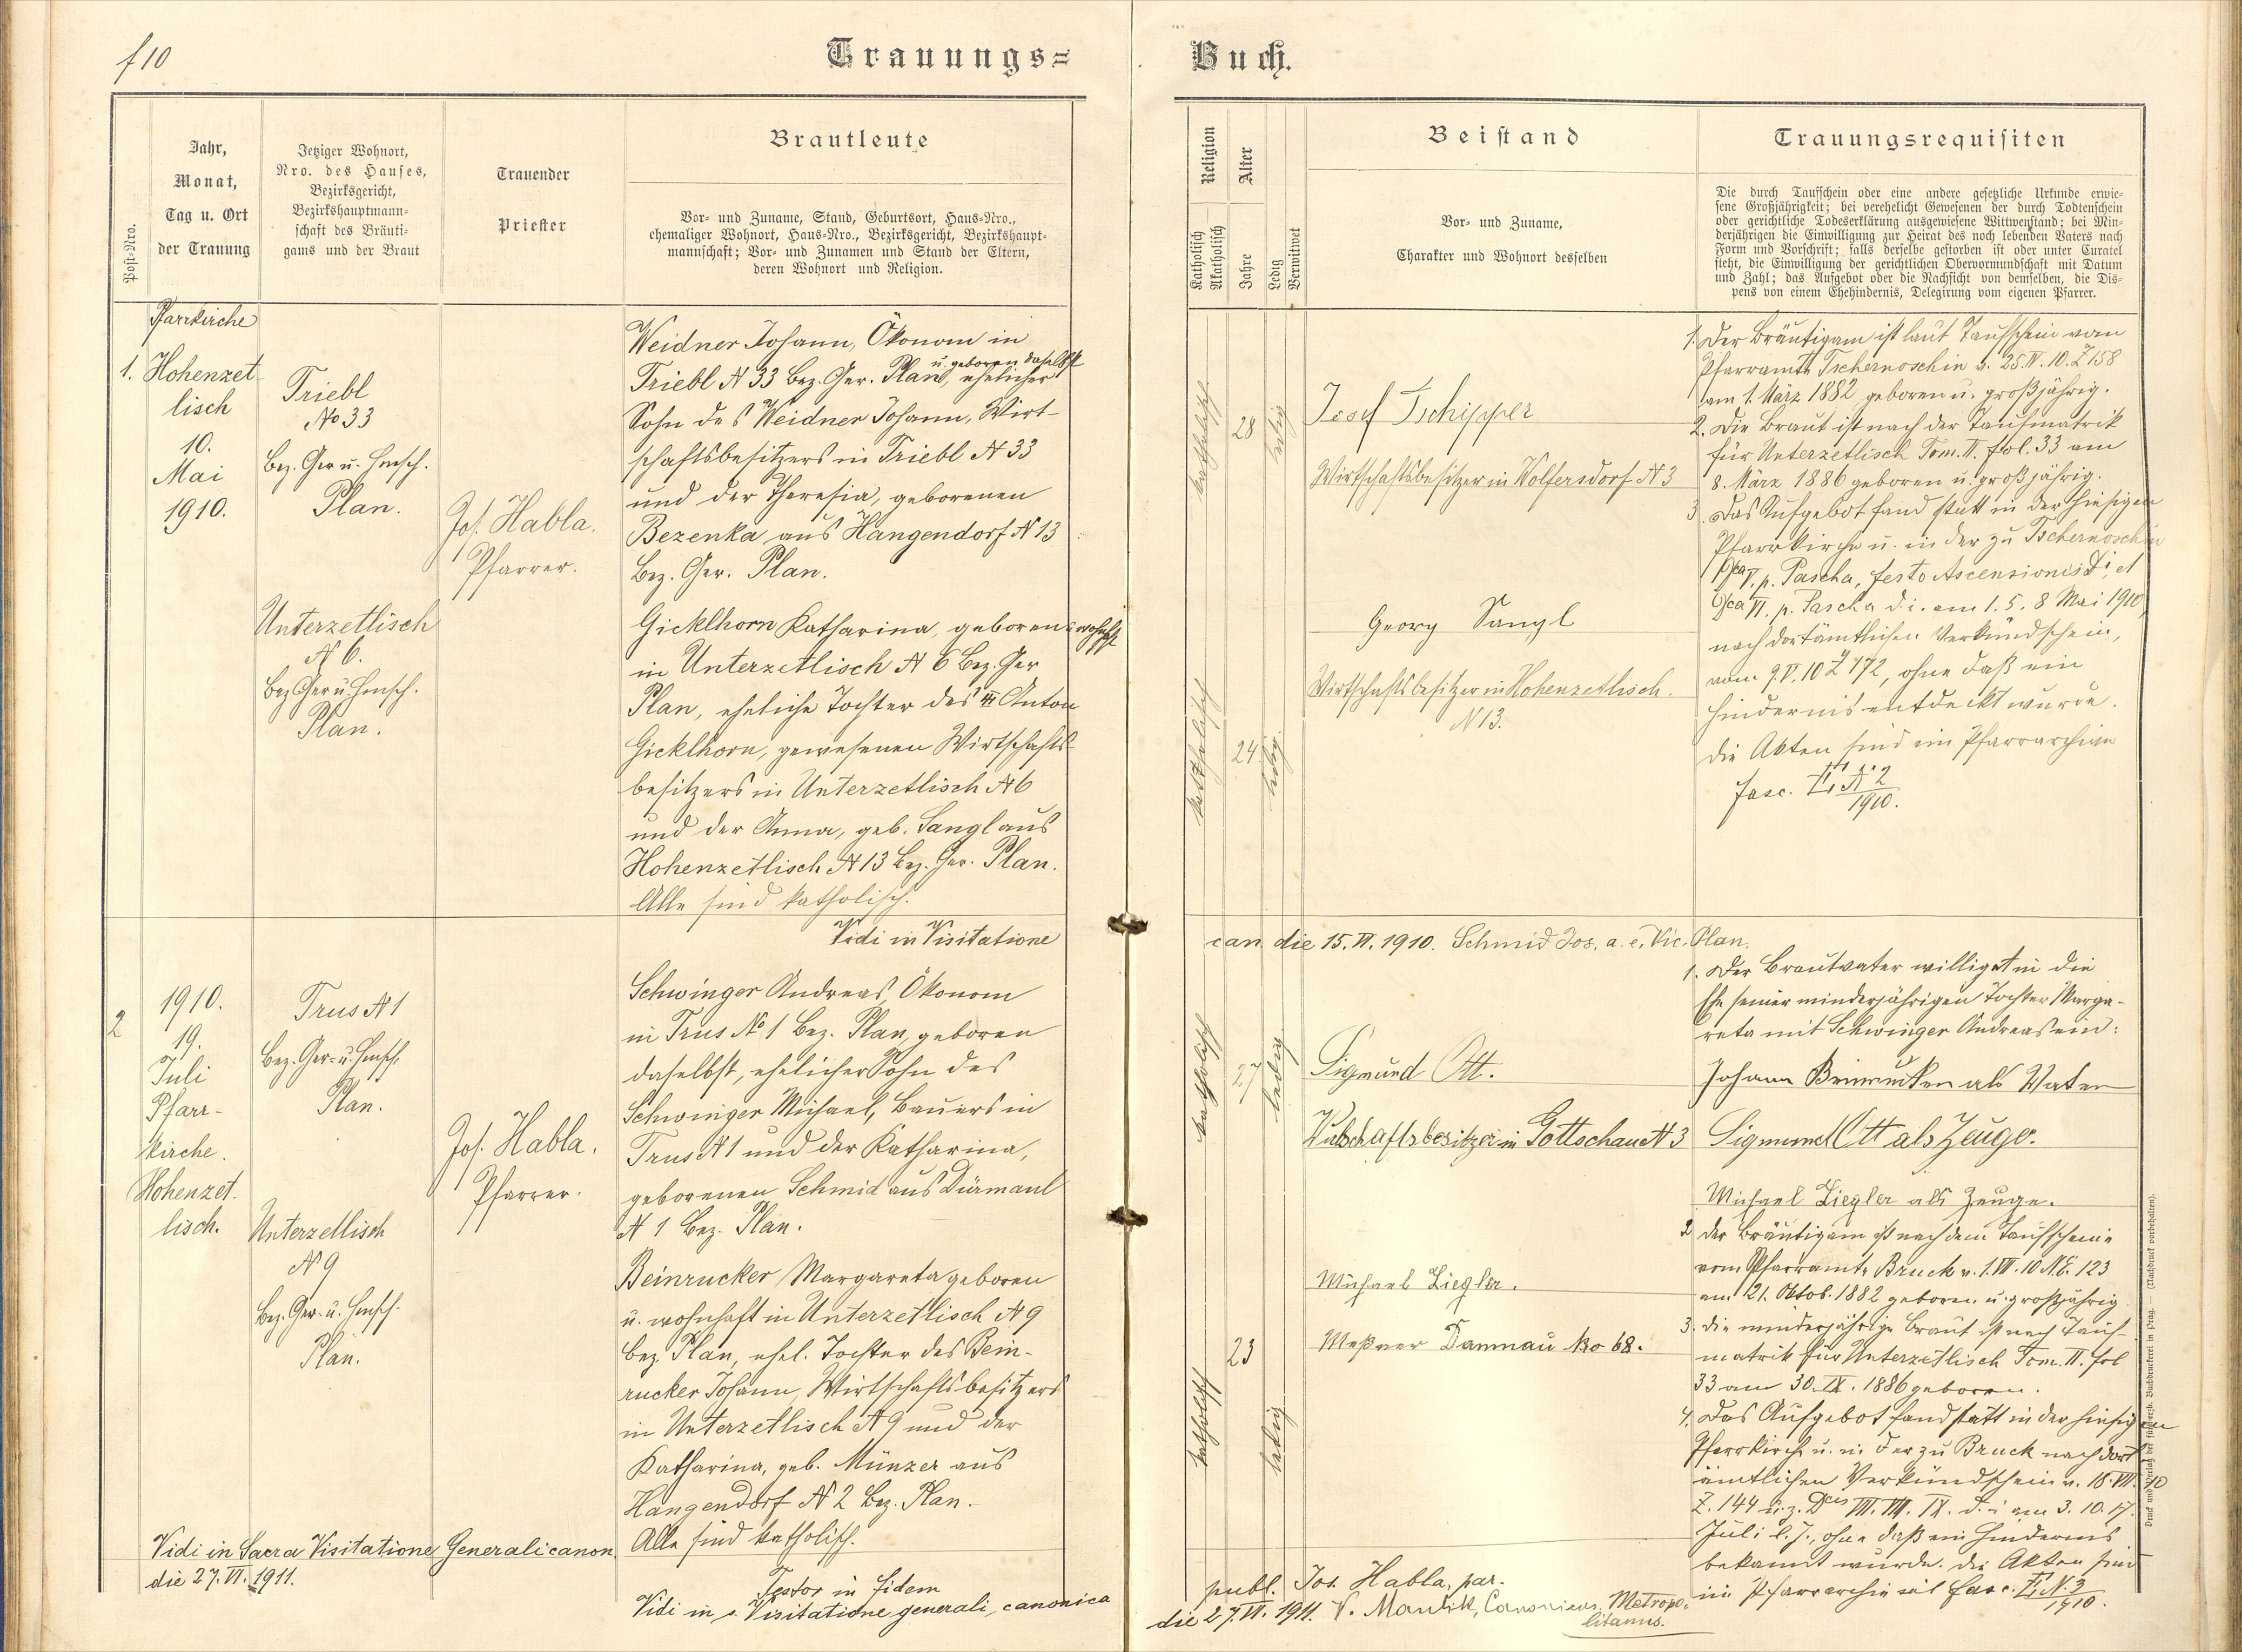 f 10
Trauungs=
Buch.
Post-Nro.
Jahr,
Monat,
Tag u. Ort
der Trauung
Jetziger Wohnort,
Nro. des Hauses,
Bezirksgericht,
Bezirkshauptmann-
schaft des Bräuti-
gams und der Braut
Trauender
Priester
Brautleute
Vor- und Zuname, Stand, Geburtsort, Haus-Nro.,
ehemaliger Wohnort, Haus-Nro., Bezirksgericht, Bezirkshaupt-
mannschaft; Vor- und Zunamen und Stand der Eltern,
deren Wohnort und Religion.
Religion
Katholisch
Akatholisch
Alter
Jahre
Ledig
Verwitwet
Beistand
Vor- und Zuname,
Charakter und Wohnort desselben
Trauungsrequisiten
Die durch Taufschein oder eine andere gesetzliche Urkunde erwie-
sene Großjährigkeit; bei verehelicht Gewesenen der durch Todtenschein
oder gerichtliche Todeserklärung ausgewiesene Wittwenstand; bei Min-
derjährigen die Einwilligung zur Heirat des noch lebenden Vaters nach
Form und Vorschrift; falls derselbe gestorben ist oder unter Curatel
steht, die Einwilligung der gerichtlichen Obervormundschaft mit Datum
und Zahl; das Aufgebot oder die Nachsicht von demselben, die Dis-
pens von einem Ehehindernis, Delegirung vom eigenen Pfarrer.
Pfarrkirche
1. Hohenzet
lisch
10.
Mai
1910.
Triebl
No 33
Bez. Ger u. Hmsch.
Plan.
Unterzetlisch
N 6.
Bez Ger u. Hmsch.
Plan.
Jos. Habla.
Pfarrer.
Weidner Johann, Ökonom in
u. geboren daselbst
Triebl N 33 Bez. Ger. Plan, ehelicher
Sohn des Weidner Johann, Wirt-
schaftsbesitzers in Triebl N 33
und der Theresia, geborenen
Bezenka aus Hangendorf N 13
Bez. Ger. Plan.
Gicklhorn Katharina, geboren u wohnhft
in Unterzetlisch N 6 Bez. Ger
Plan, eheliche Tochter des Anton
Gicklhorn, gewesenen Wirtschafts-
besitzers in Unterzetlisch N 6
und der Anna, geb. Sangl aus
Hohenzetlisch N 13 Bez. Ger. Plan.
Alle sind katholisch.
katholisch
28
ledig
katholisch
24
ledig
Josef Tschipper
Wirtschaftsbesitzer in Wolfersdorf N 3
Georg Sangl
Wirtschaftsbesitzer in Hohenzetlisch.
N 13.
1. Der Bräutigam ist laut Taufschein vom
Pfarramte Tschernoschin v. 25. IV. 10. Z 158
am 1. März 1882 geboren u. großjährig.
2. Die Braut ist nach der Taufmatrik
für Unterzetlisch Tom. II. fol. 33 am
8. März 1886 geboren u. großjährig.
3. Das Aufgebot fand statt in der hiesigen
Pfarrkirche u. in der zu Tschernoschin
V. p. Pascha, festo Ascensionis Di, et
VI. p. Pascha d. i. am 1. 5. 8 Mai 1910,
nach dortämtlichen Verkündschein,
vom 9. V. 10 Z 172, ohne daß ein
Hindernis entdeckt wurde.
Die Akten sind im Pfarrarchive
fasc. N 2
1910.
Vidi in Visitatione
can. die 15. VI. 1910. Schmid Jos. a. e. Vic. Plan.
2
1910.
19.
Juli
Pfarr-
kirche.
Hohenzet.
lisch.
Trus N 1
Bez. Ger.- u. Hmsch.
Plan.
Unterzetlisch
N 9
Bez. Ger. u. Hmsch.
Plan.
Jos. Habla.
Pfarrer.
Schwinger Andreas, Ökonom
in Trus No 1 Bez. Plan, geboren
daselbst, ehelicher Sohn des
Schwinger Michael, Bauers in
Trus N 1 und der Katharina,
geborenen Schmid aus Dürmaul
N 1 Bez. Plan.
Beinrucker Margareta geboren
u. wohnhaft in Unterzetlisch N 9
Bez. Plan, ehel. Tochter des Bein-
rucker Johann, Wirtschaftsbesitzers
in Unterzetlisch N 9 und der
Katharina, geb. Münzer aus
Hangendorf N 2 Bez. Plan.
Alle sind katholisch.
katholisch
27
ledig
katholisch
23
ledig
Sigmund Ott.
Wirtschaftsbesitzer in Gottschau N 3
Michael Ziegler.
Meßner Damnau No 68.
1. Der Brautvater williget in die
Ehe seiner minderjährigen Tochter Marga-
reta mit Schwinger Andreas ein:
Johann Beinrucker als Vater
Sigmund Ott als Zeuge.
Michael Ziegler als Zeuge.
2 der Bräutigam ist nach dem Taufscheine
vom Pfarramte Bruck v. 1. VII. 10 N.E. 123
am 21. Oktob. 1882 geboren u. großjährig.
3. die minderjährige Braut ist nach Tauf-
matrik für Unterzetlisch Tom. II. fol
33 am 30. IX. 1886 geboren.
4. Das Aufgebot fand statt in der hiesigen
Pfarrkirche u. in der zu Bruck nach dort-
ämtlichen Verkündschein v. 18. VII. 10
Z. 144 u. z. Dcis VII. VIII. IX. d. i am 3. 10. 17.
Juli l. J., ohne daß ein Hindernis
bekannt wurde. Die Akten sind
im Pfarrarchiv sub fasc. N. 3
1910.
Vidi in Sacra Visitatione Generali canon.
die 27. VI. 1911.
Testor in fidem
Vidi in s. Visitatione generali, canonica
publ. Jos. Habla, par.
die 27. VI. 1911. Canonicus Metropo-
litanus.
Druck und Verlag der fürsterzb. Buchdruckerei in Prag. (Nachdruck vorbehalten).